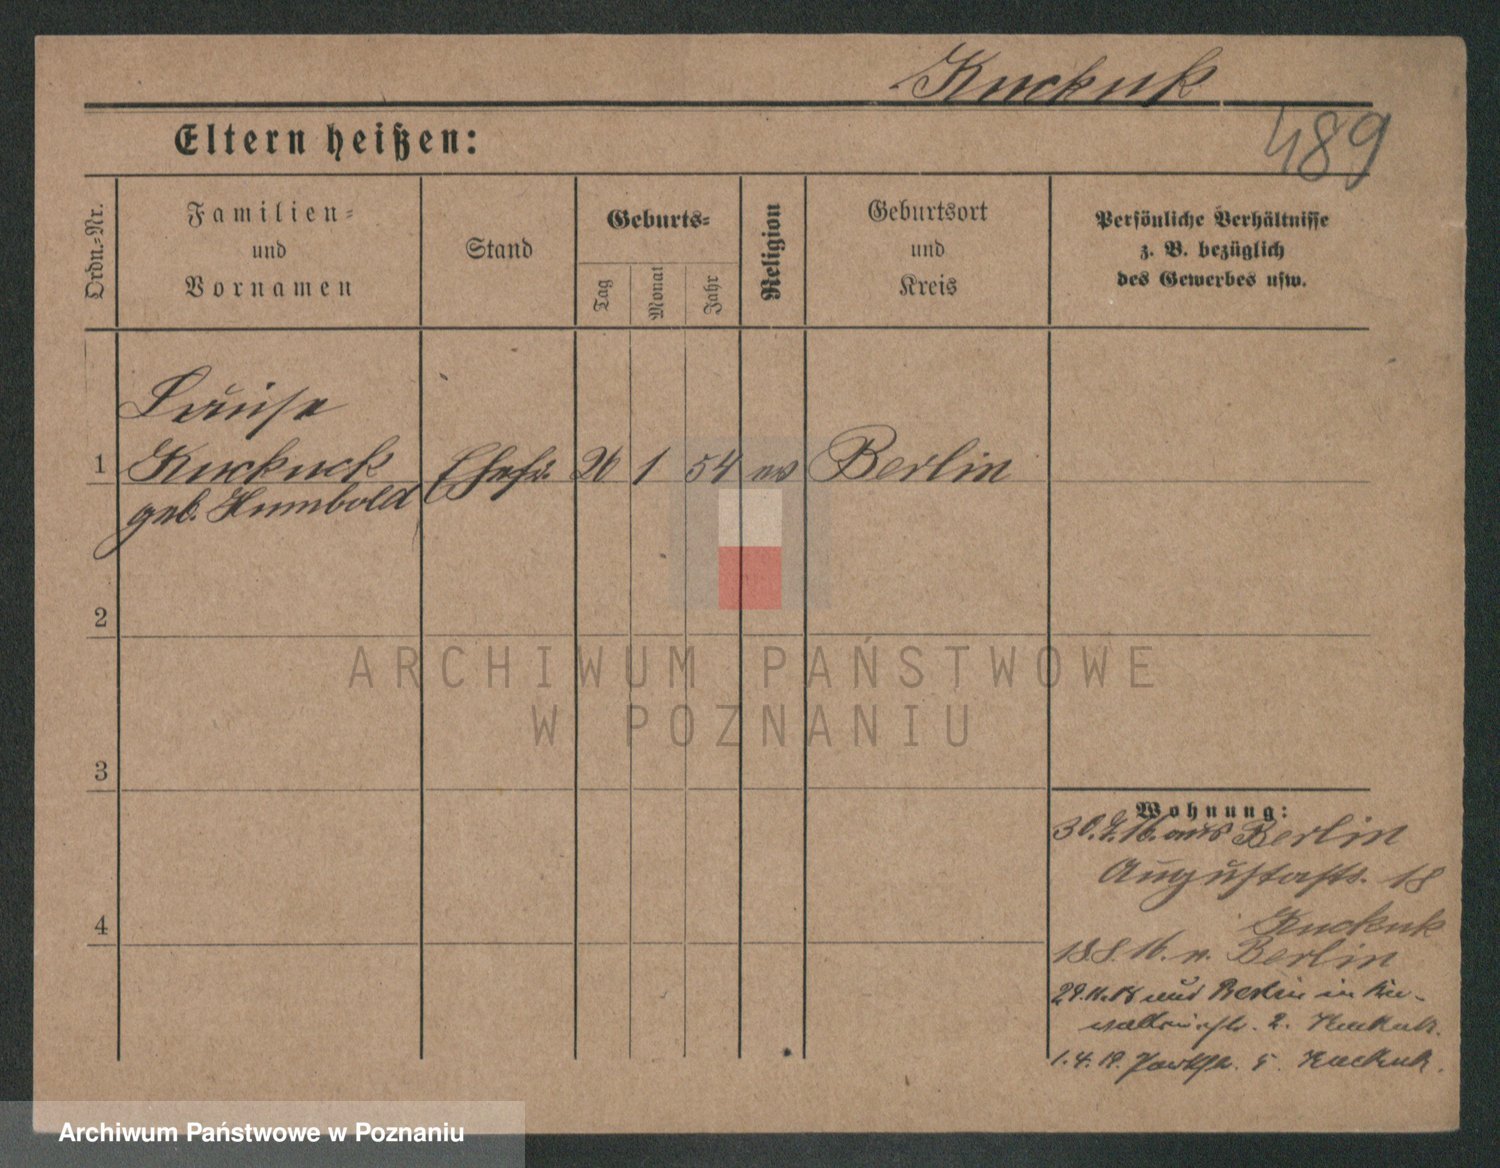 Kuckuk
489
Eltern heißen:
Ordn.-Nr.
Familien-
und
Vornamen
Stand
Geburts-
Tag
Monat
Jahr
Religion
Geburtsort
und
Kreis
Persönliche Verhältnisse
z. B. bezüglich
des Gewerbes usw.
Luise
1 Kuckuck Ehefr. 26 1 54 ev Berlin
geb. Humbold
2
ARCHIWUM PAŃSTWOWE
W POZNANIU
3
Wohnung:
16. aus Berlin
Augustastr. 18
4
Kuckuk
18.8.16. n. Berlin
aus Berlin in
2. Kuckuk.
1.4.19. Parkstr. 5 Kuckuk.
Archiwum Państwowe w Poznaniu